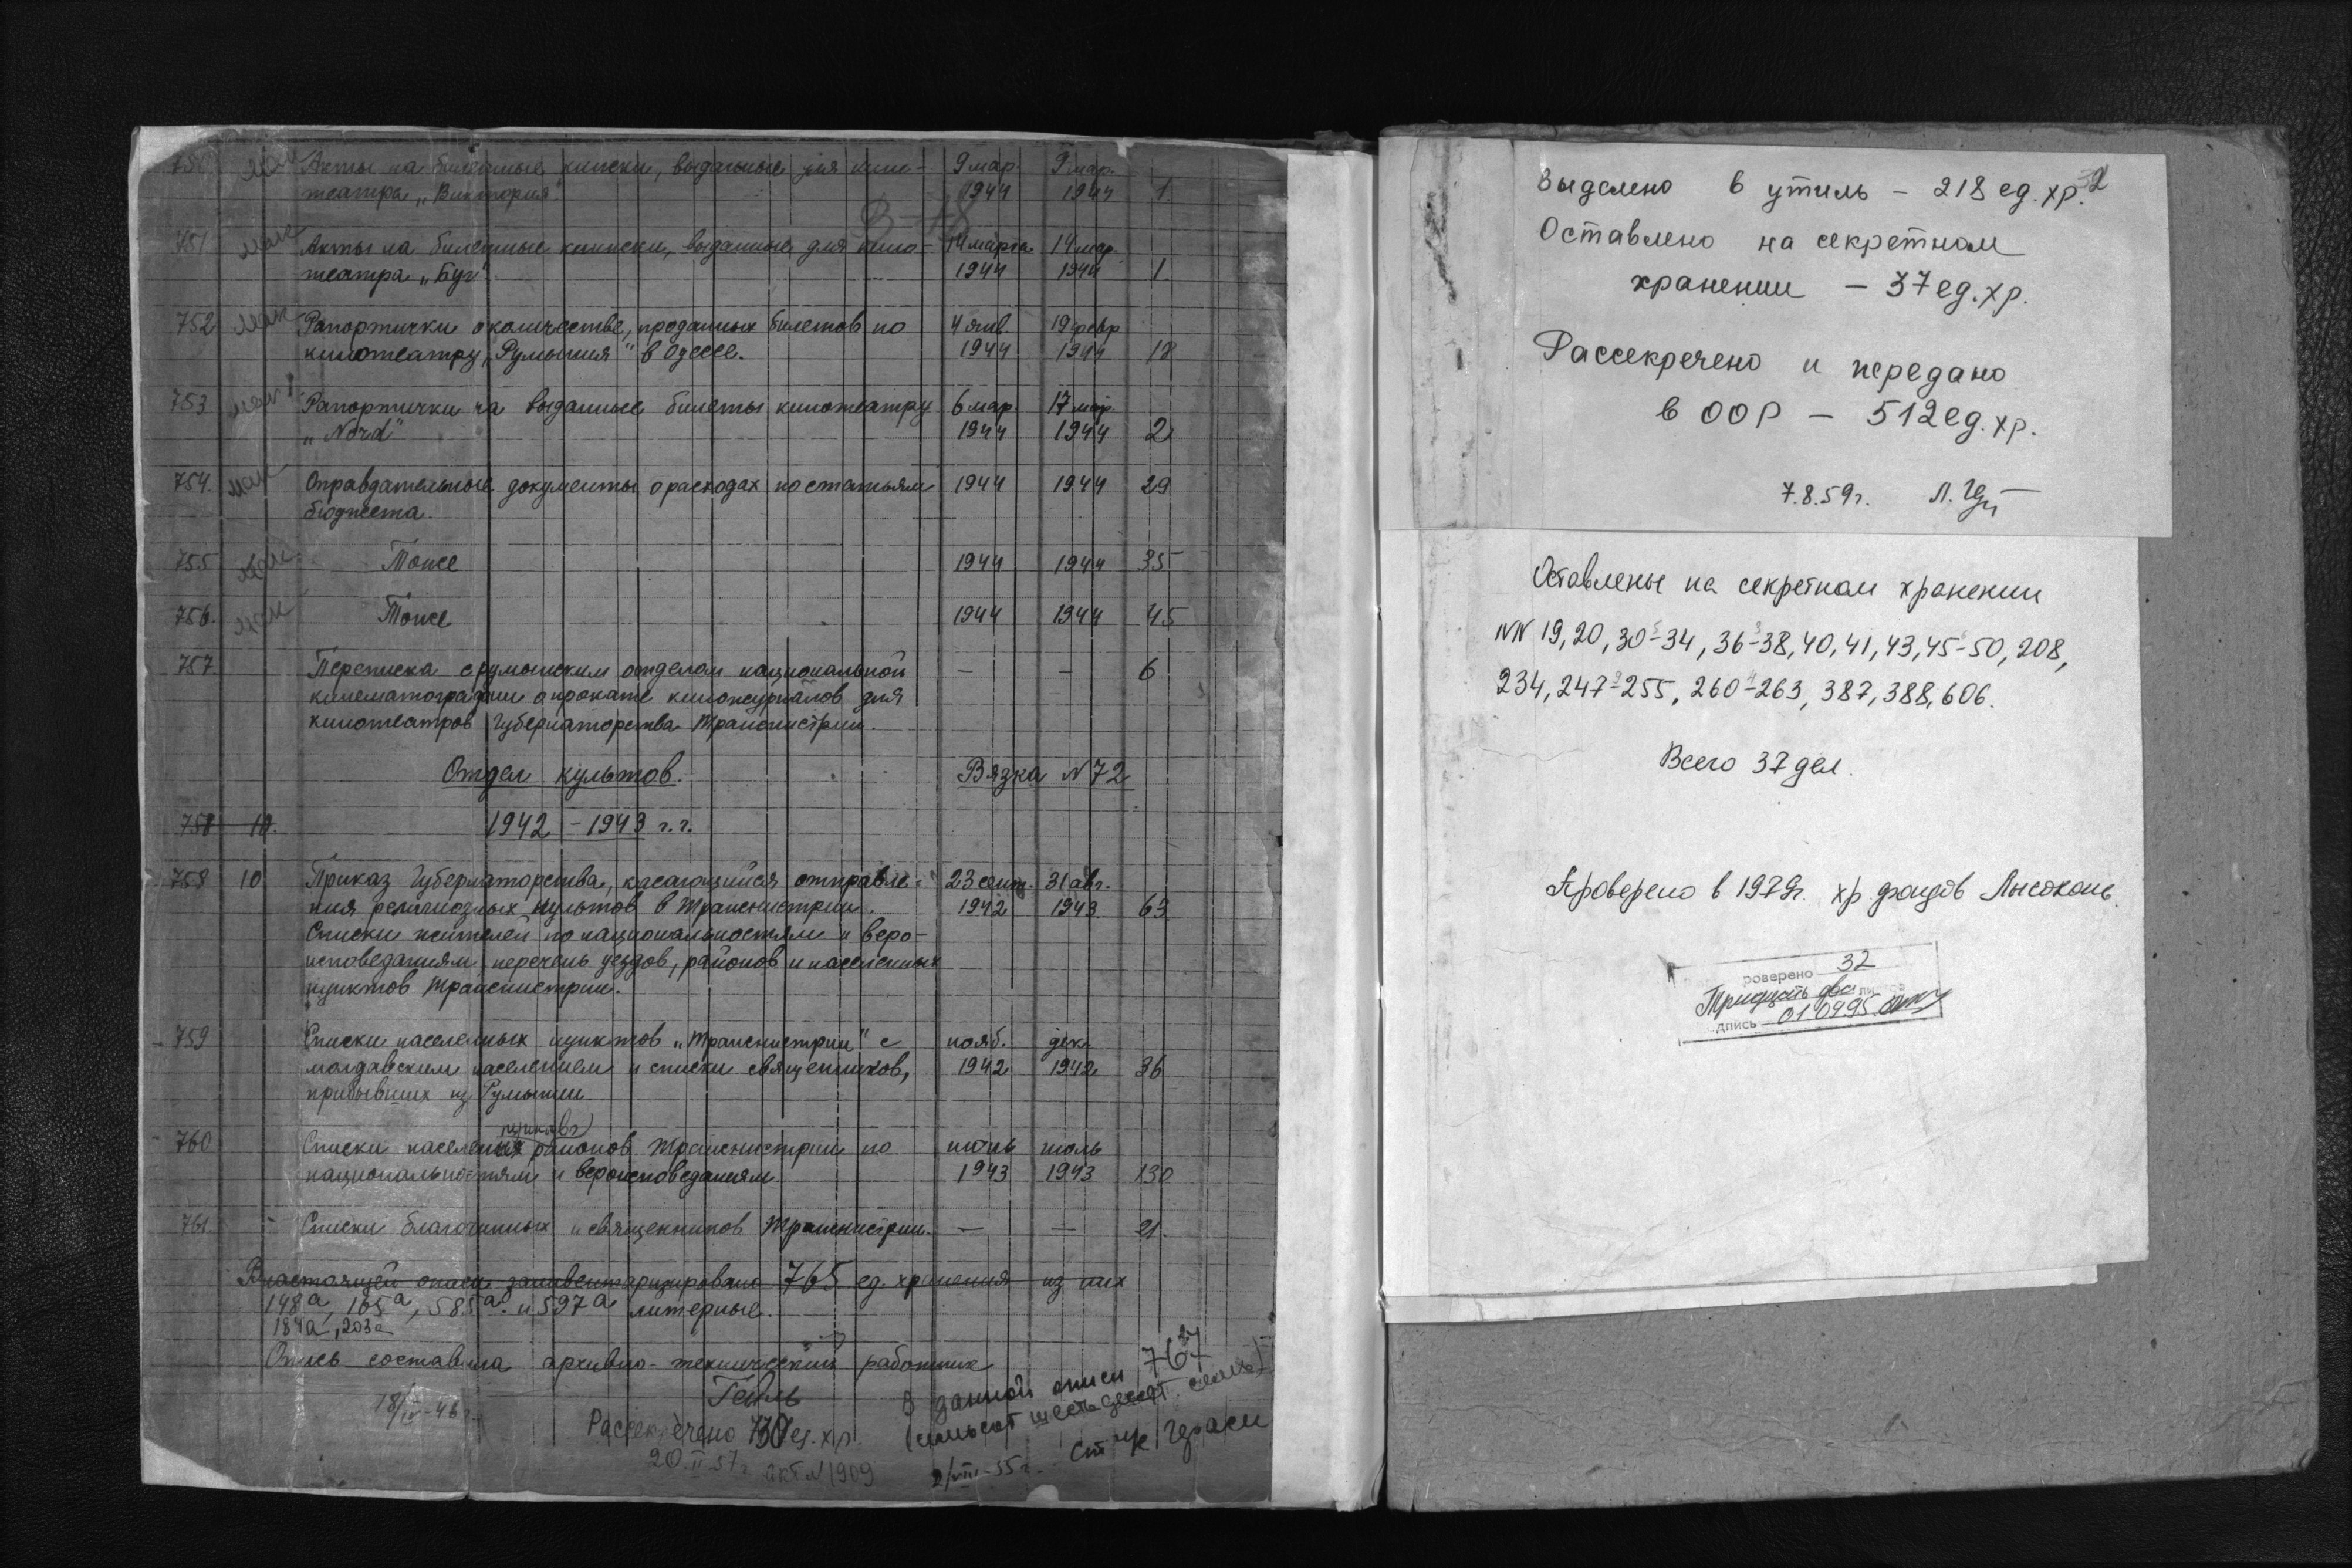 750 мак Акты на билетные книжки, выданные для кино- 9 мар. 9 мар.
театра „Виктория" 1944 1944 1
751 мак Акты на билетные книжки, выданные для кино- 14 марта 14 мар.
театра „Буг". 1944 1944 1
752 мак Рапортички о количестве, проданных билетов по 4 янв. 19 февр
кинотеатру „Румыния" в Одессе. 1944 1944 18
753 мак Рапортички на выданные билеты кинотеатру 6 мар. 17 мар.
„Nord" 1944 1944 2
754. мак Оправдательные документы о расходах по статьям 1944 1944 29
бюджета.
755 мак Тоже 1944 1944 35
756. мак Тоже 1944 1944 45
757. Переписка с румынским отделом национальной — — 6
кинематографии о прокате киножурналов для
кинотеатров Губернаторства Транснистрии.
Отдел культов. Вязка N 72
758 10. 1942 – 1943 г.г.
758 10 Приказ Губернаторства, касающийся отправле- 23 сент. 31 авг.
ния религиозных культов в Транснистрии. 1942 1943. 63
Списки жителей по национальностям и веро-
исповеданиям, перечень уездов, районов и населенных
пунктов Транснистрии.
759 Списки населенных пунктов „Транснистрии" с нояб. дек.
молдавским населением и списки священников, 1942 1942 36
прибывших из Румынии
760 Списки населенных пунктов районов Транснистрии по июнь июль
национальностям и вероисповеданиям. 1943 1943 130
761. Списки благочинных и священников Транснистрии. — — 21.
В настоящей описи заинвентаризировано 765 ед. хранения из них
148а, 165а, 585а. и 597а литерные.
184а, 203а
Опись составила архивно-технический работник
18/IV-46 г.
Рассекречено 730 ед. хр.
20.II 57 г. акт N 1909
В данной описи 767
(семьсот шестьдесят семь)
2/VIII-55 г.
Выделено в утиль – 218 ед. хр. 32
Оставлено на секретном
хранении – 37 ед. хр.
Рассекречено и передано
в ООР – 512 ед. хр.
7.8.59г.
Оставлены на секретном хранении
NN 19, 20, 30-34, 36-38, 40, 41, 43, 45-50, 208,
234, 247-255, 260-263, 387, 388, 606.
Всего 37 дел.
Проверено в 1979г. хр фондов
роверено 32
Тридцать два листов
одпись 01.04.95